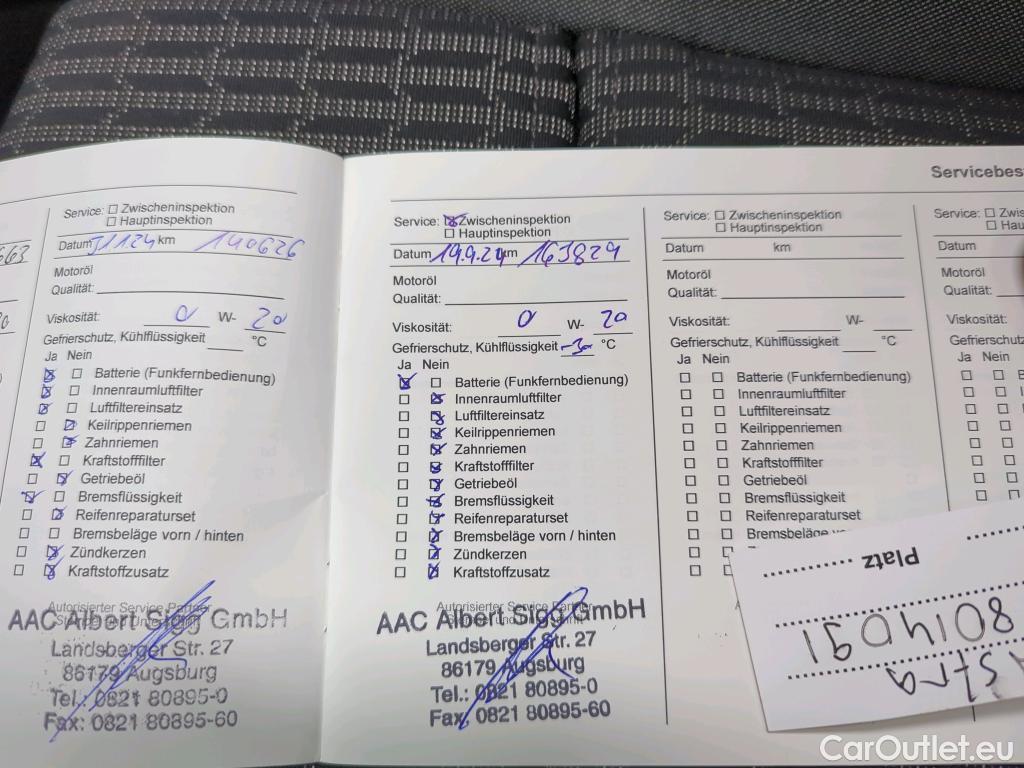 663
Service: Zwischeninspektion
Hauptinspektion
Datum 5.11.24 km 140626
Motoröl
Qualität:
Viskosität: 0 W- 20
Gefrierschutz, Kühlflüssigkeit °C
Ja Nein
Batterie (Funkfernbedienung)
Innenraumluftfilter
Luftfiltereinsatz
Keilrippenriemen
Zahnriemen
Kraftstofffilter
Getriebeöl
Bremsflüssigkeit
Reifenreparaturset
Bremsbeläge vorn / hinten
Zündkerzen
Kraftstoffzusatz
Autorisierter Service Partner
AAC Albert Sigg GmbH
Landsberger Str. 27
86179 Augsburg
Tel.: 0821 80895-0
Fax: 0821 80895-60
Service: Zwischeninspektion
Hauptinspektion
Datum 19.9.24 km 163829
Motoröl
Qualität:
Viskosität: 0 W- 20
Gefrierschutz, Kühlflüssigkeit -30 °C
Ja Nein
Batterie (Funkfernbedienung)
Innenraumluftfilter
Luftfiltereinsatz
Keilrippenriemen
Zahnriemen
Kraftstofffilter
Getriebeöl
Bremsflüssigkeit
Reifenreparaturset
Bremsbeläge vorn / hinten
Zündkerzen
Kraftstoffzusatz
Autorisierter Service Partner
AAC Albert Sigg GmbH
Landsberger Str. 27
86179 Augsburg
Tel.: 0821 80895-0
Fax: 0821 80895-60
Service: Zwischeninspektion
Hauptinspektion
Datum km
Motoröl
Qualität:
Viskosität: W-
Gefrierschutz, Kühlflüssigkeit °C
Ja Nein
Batterie (Funkfernbedienung)
Innenraumluftfilter
Luftfiltereinsatz
Keilrippenriemen
Zahnriemen
Kraftstofffilter
Getriebeöl
Bremsflüssigkeit
Reifenreparaturset
Bremsbeläge
Servicebes
Service: Zwis
Hau
Datum
Motoröl
Qualität:
Viskosität:
Gefrierschutz
Ja Nein
Astra
8014091
Platz
CarOutlet.eu